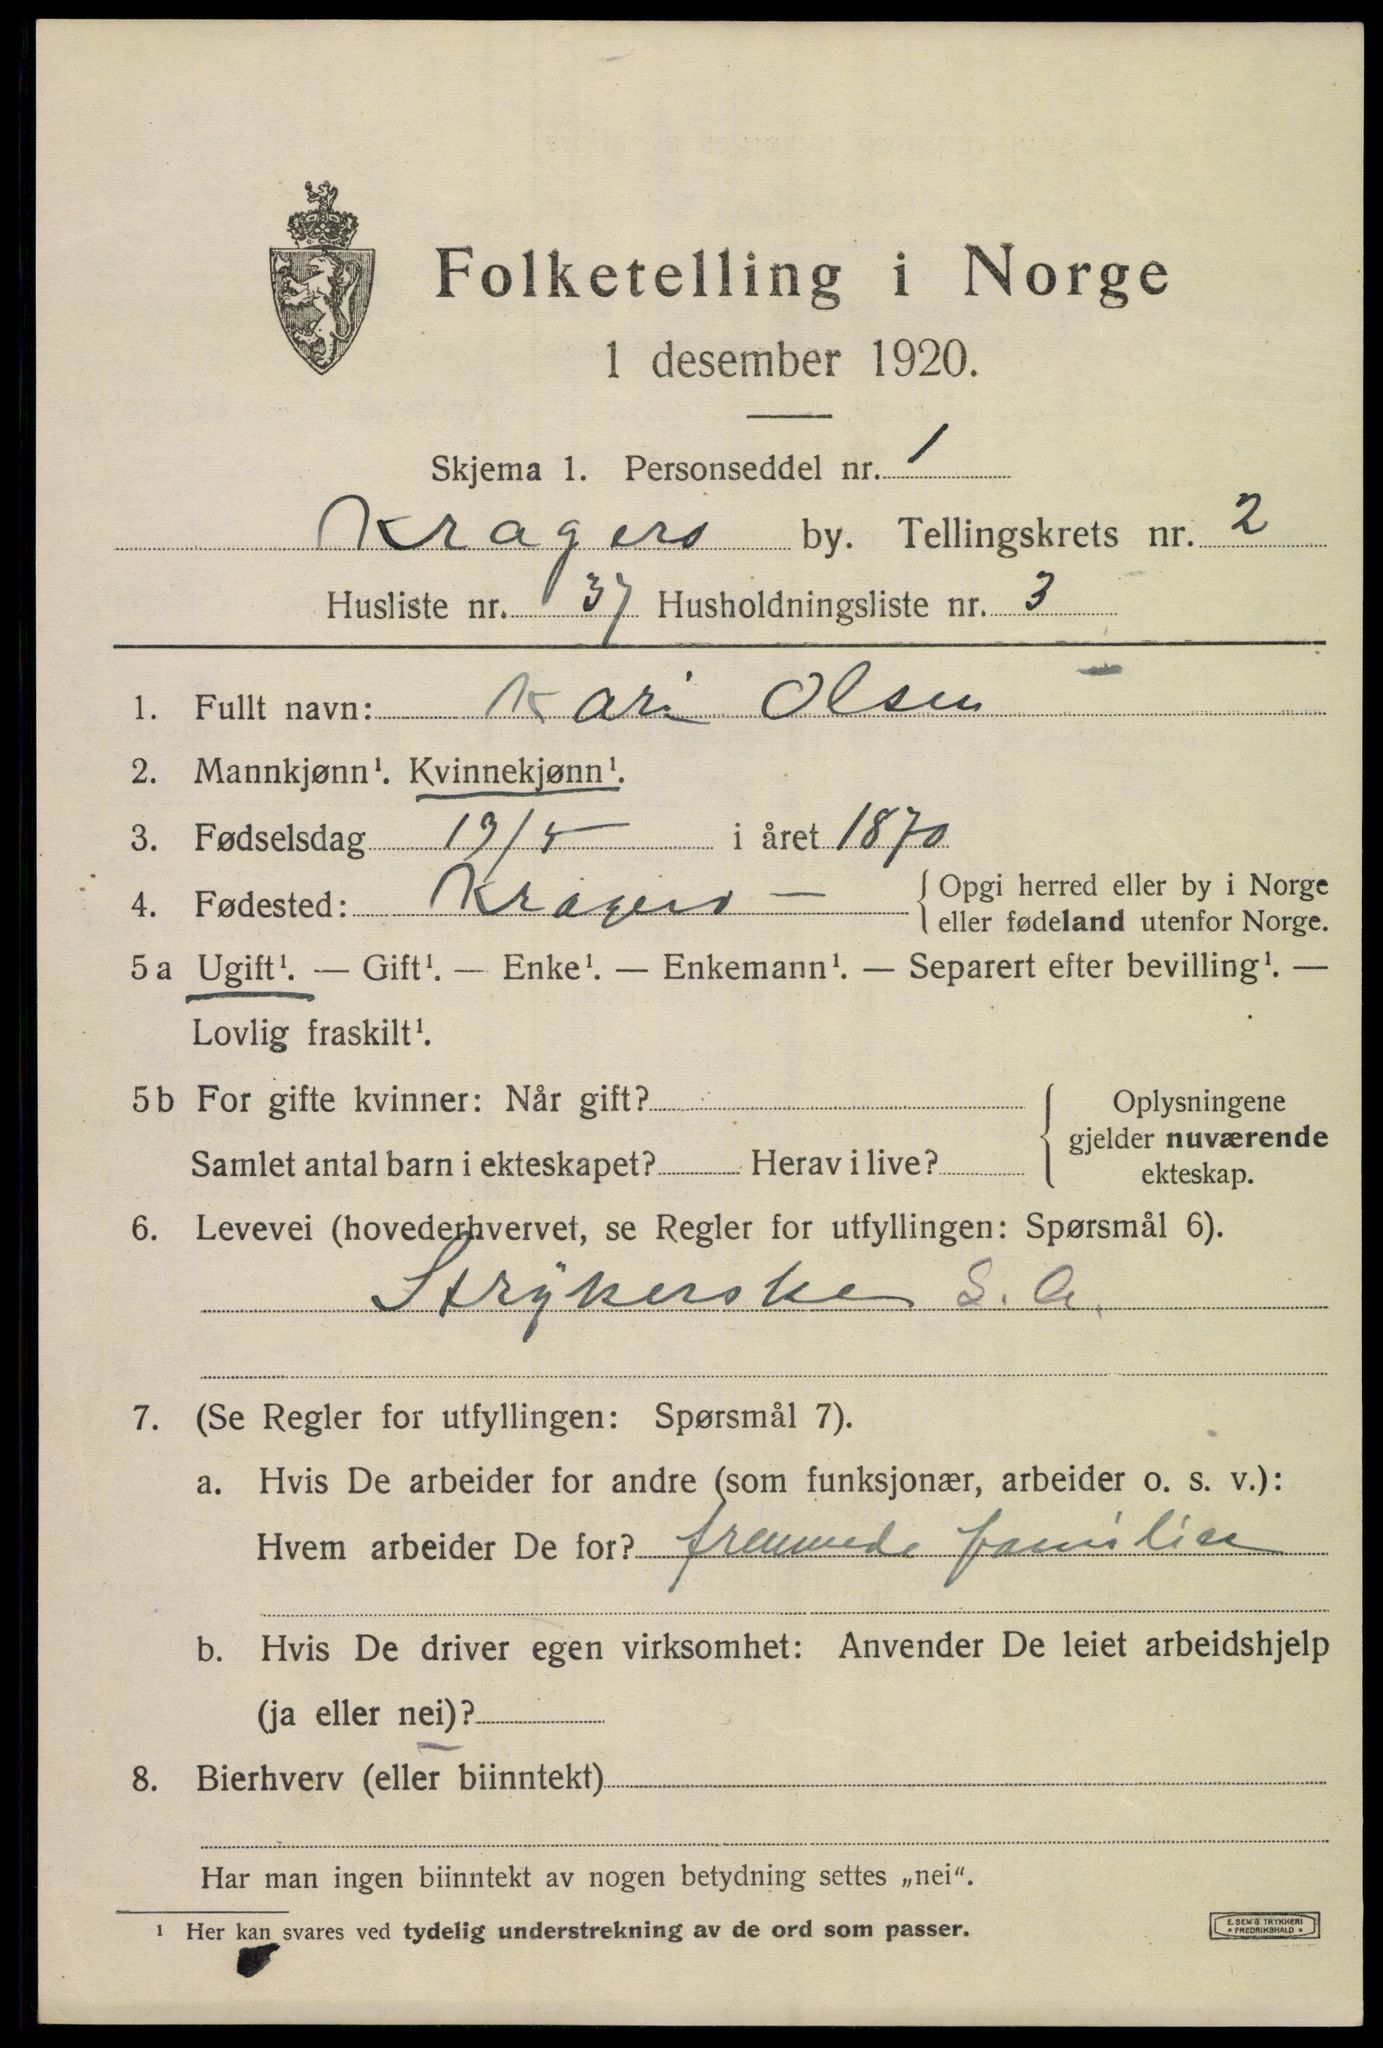 Folketelling i Norge
1 desember 1920.
Skjema 1. Personseddel nr. 1
Kragerø by. Tellingskrets nr. 2
Husliste nr. 37 Husholdningsliste nr. 3
1. Fullt navn: Kari Olsen
2. Mannkjønn¹. Kvinnekjønn¹.
3. Fødselsdag 19/5 i året 1870
4. Fødested: Kragerø — { Opgi herred eller by i Norge
eller fødeland utenfor Norge.
5 a Ugift¹. — Gift¹. — Enke¹. — Enkemann¹. — Separert efter bevilling¹. —
Lovlig fraskilt¹.
5 b For gifte kvinner: Når gift?
Samlet antal barn i ekteskapet? Herav i live?
{ Oplysningene
gjelder nuværende
ekteskap.
6. Levevei (hovederhvervet, se Regler for utfyllingen: Spørsmål 6).
Strykerske S. A.
7. (Se Regler for utfyllingen: Spørsmål 7).
a. Hvis De arbeider for andre (som funksjonær, arbeider o. s. v.):
Hvem arbeider De for? fremmede familier
b. Hvis De driver egen virksomhet: Anvender De leiet arbeidshjelp
(ja eller nei)?
8. Bierhverv (eller biinntekt)
Har man ingen biinntekt av nogen betydning settes „nei“.
¹ Her kan svares ved tydelig understrekning av de ord som passer.
E. SEM'S TRYKKERI
* FREDRIKSHALD *